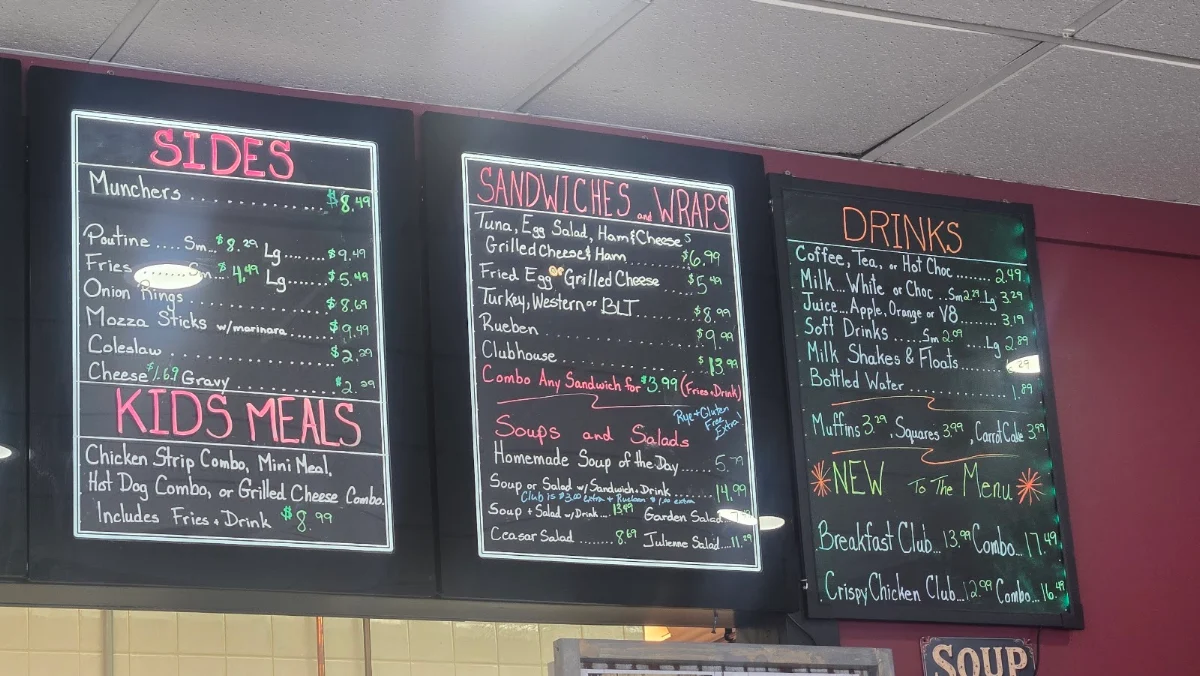 SIDES
Munchers .................. $8.49
Poutine .... Sm.. $8.29 Lg...... $9.49
Fries ....... Sm... $4.49 Lg...... $5.49
Onion Rings .................. $8.69
Mozza Sticks w/marinara...... $9.49
Coleslaw .................. $2.29
Cheese $1.69 Gravy .............. $2.29
KIDS MEALS
Chicken Strip Combo, Mini Meal,
Hot Dog Combo, or Grilled Cheese Combo.
Includes Fries + Drink $8.99
SANDWICHES and WRAPS
Tuna, Egg Salad, Ham & Cheese
Grilled Cheese & Ham .......... $6.99
Fried Egg or Grilled Cheese ... $5.49
Turkey, Western or BLT .......... $8.99
Rueben .................. $9.99
Clubhouse .................. $13.99
Combo Any Sandwich for $3.99 (Fries + Drink)
Rye + Gluten
Free
Extra!
Soups and Salads
Homemade Soup of the Day......
Soup or Salad w/Sandwich + Drink ........ 14.99
Club is $3.00 extra + Rueben $1.00 extra
Soup + Salad w/Drink.... 13.99 Garden Salad
Ceasar Salad ........ 8.69 Julienne Salad....11.29
DRINKS
Coffee, Tea, or Hot Choc ....... 2.49
Milk...White or Choc .. Sm 2.29 Lg 3.29
Juice...Apple, Orange or V8....... 3.19
Soft Drinks .....Sm 2.09 .... Lg 2.89
Milk Shakes & Floats..........
Bottled Water ............... 1.89
Muffins 3.29, Squares 3.99, Carrot Cake 3.99
NEW To The Menu
Breakfast Club... 13.99 Combo... 17.49
Crispy Chicken Club...12.99 Combo... 16.49
SOUP